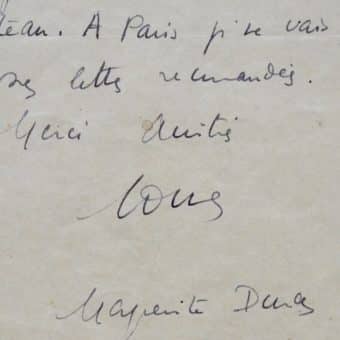 À Paris je vais
ses lettres recommandées.
Merci Amitié
Marguerite Duras